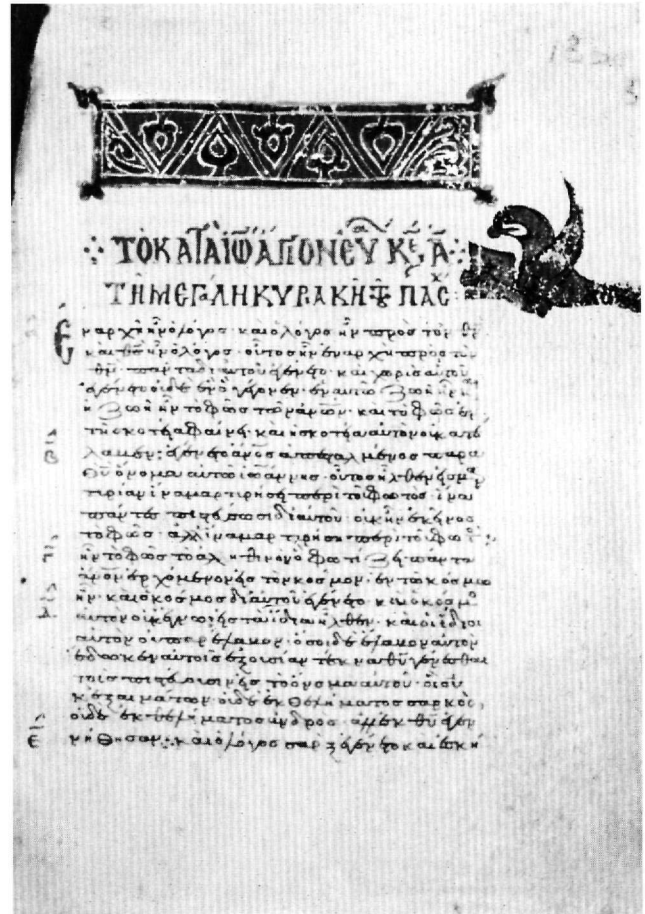 ΤΟ ΚΑΤΑ ἸΩ ἉΓΙΟΝ ΕΥΑ ΚΕ Α
ΤΗ ΜΕΓΑΛΗ ΚΥΡΑΚΗ ΠΑΣΧ
Ἐν αρχῆ ἦν ὁ λόγος· και ο λόγος ἦν προς τὸν θν
και θς ἦν ὁ λόγος· οὗτος ἦν ἐν αρχῆ προς τὸν
θν· παντα δι αυτου ἐγένετο· και χωρις αυτου
ἐγένετο οὐδε ἕν ὁ γέγονεν· ἐν αυτῶ ζωὴ ἦν και
ἡ ζωὴ ἦν το φῶς των ἀνων· και το φῶς ἐν
τῆ σκοτεία φαίνει· και ἡ σκοτεία αυτὸν οὐ κατε
λαμεν· ἐγένετο ἀνος απεσταλμένος παρα
θῦ ὄνομα αυτῶ ἰωάννης· οὗτος ἦλθεν ἐς μαρ
τιριαν ἵνα μαρτιρησῃ περὶ του φωτος· ἵνα
παντες πιστεύσωσι δι αυτοῦ· οὐκ ἦν ἐκένος
το φῶς· αλλ ἵνα μαρτιρηση περι του φωτός
ἦν το φῶς το αληθινον ὁ φωτίζει παντα
ἀνον ἐρχόμενον ἐς τὸν κόσμον· ἐν τω κόσμω
ἦν· και ὁ κόσμος δι αυτοῦ ἐγένετο· και ὁ κόσμος
αυτὸν οὐκ ἔγνω· ἐς τα ἴδια ἦλθεν· και οἱ ἴδιοι
αυτὸν οὐ παρέλαμον· ὅσοι δε ἔλαμον αυτὸν
ἔδωκεν αυτοῖς ἐξουσίαν τέκνα θῦ γενέσθαι
τοις πιστεύουσιν ἐς το όνομα αυτοῦ· οἱ οὐ
κ ἐξ αιμάτων· οὐδε ἐκ θελήματος σαρκὸς,
οὐδε ἐκ θελήματος ανδρος· αλλ ἐκ θῦ ἐγεν
νήθησαν· και ο λόγος σαρξ ἐγένετο και ἐσκή
Β
Γ
Δ
Ε